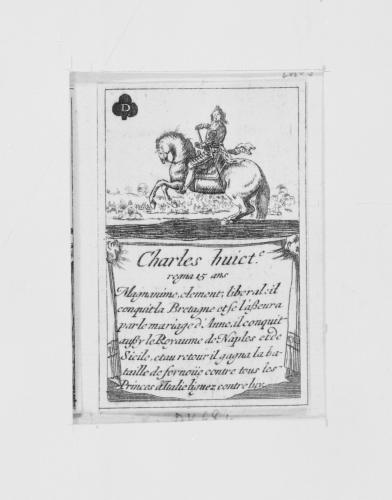 D
Charles huict.e
regna 15 ans
Magnanime, clement, liberal: il
conquit la Bretagne et se l'aßeura
par le mariage d'Anne, il conquit
außy le Royaume de Naples et de
Sicile, et au retour il gagna la ba-
taille de fornoüe contre tous les
Princes d'Italie liguez contre luy.